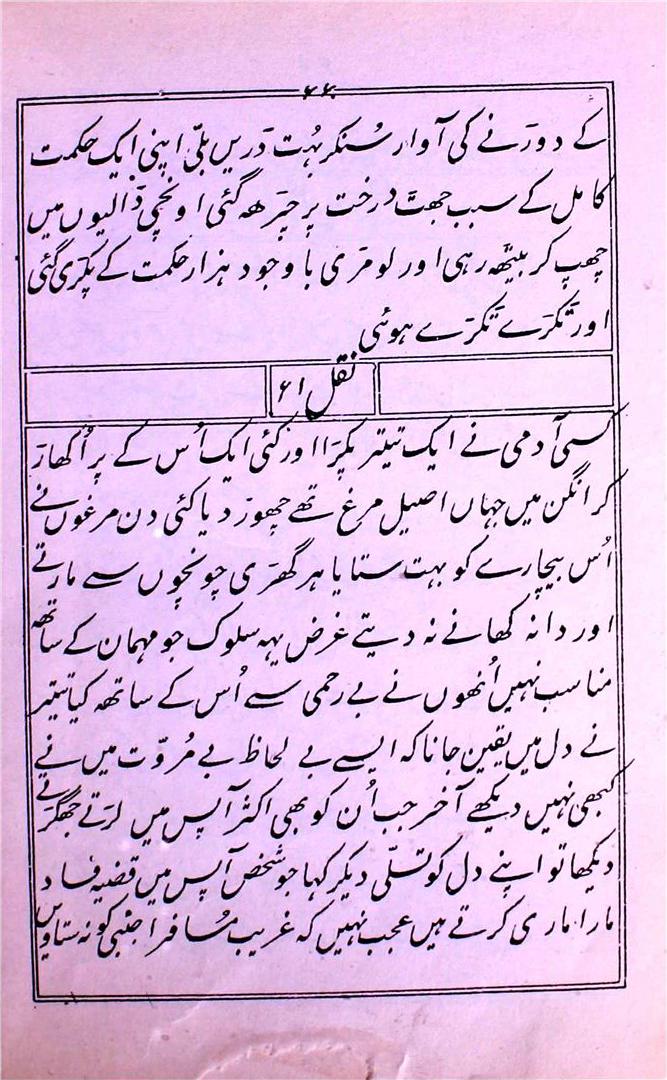 ۶۶
کے دورنے کی آواز سُنکر بہُت دَریں بلّی اپنی ایک حکمت
کامل کے سبب جھٹ درخت پر چَرھ گئی اونچی دَالیوں میں
چھپ کر بیٹھ رہی اور لومَری باوجود ہزار حکمت کے پکَری گئی
اور تَکرَے تَکرَے ہوئی
نقل ۶۱
کسی آدمی نے ایک تیتر پکَرا اور کئی ایک اُس کے پر اُکھارَ
کر انگن میں جہاں اصیل مرغ تھے چھورَ دیا کئی دن مرغوں نے
اُس بیچارے کو بہت ستایا ہر گھرَی چونچوں سے مارتے
اور دانہ کھانے نہ دیتے غرض یہہ سلوک جو مہمان کے ساتھ
مناسب نہیں اُنھوں نے بے رحمی سے اُس کے ساتھ کیا تیتر
نے دل میں یقین جانا کہ ایسے بے لحاظ بے مُروّت میں نے
کبھی نہیں دیکھے آخر جب اُن کو بھی اکثر آپس میں لرَتے جھگرَتے
دیکھا تو اپنے دل کو تسلّی دیکر کہا جو شخص آپس میں قضیہ فساد
مارا ماری کرتے ہیں عجب نہیں کہ غریب مُسافر اجنبی کو نہ ستاویں